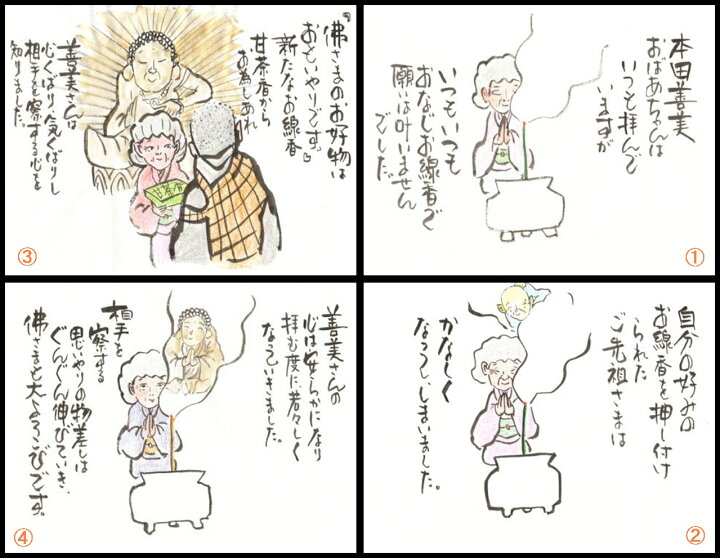 ①
本田善美
おばあちゃんは
いつも拝んで
いますが
いつもいつも
おなじお線香で
願いは叶いません
でした。
②
自分の好みの
お線香を押し付け
られた
ご先祖さまは
かなしく
なってしまいました。
③
『佛さまのお好物は
おもいやりです。』
新たなお線香
甘茶香から
お為しあれ
甘茶香
善美さんは
心くばり、気くばりし
相手を察する心を
知りました。
④
善美さんの
心は安らかになり
拝む度に若々しく
なっていきました。
相手を
察する
思いやりの物差しは
ぐんぐん伸びていき、
佛さまも大よろこびです。